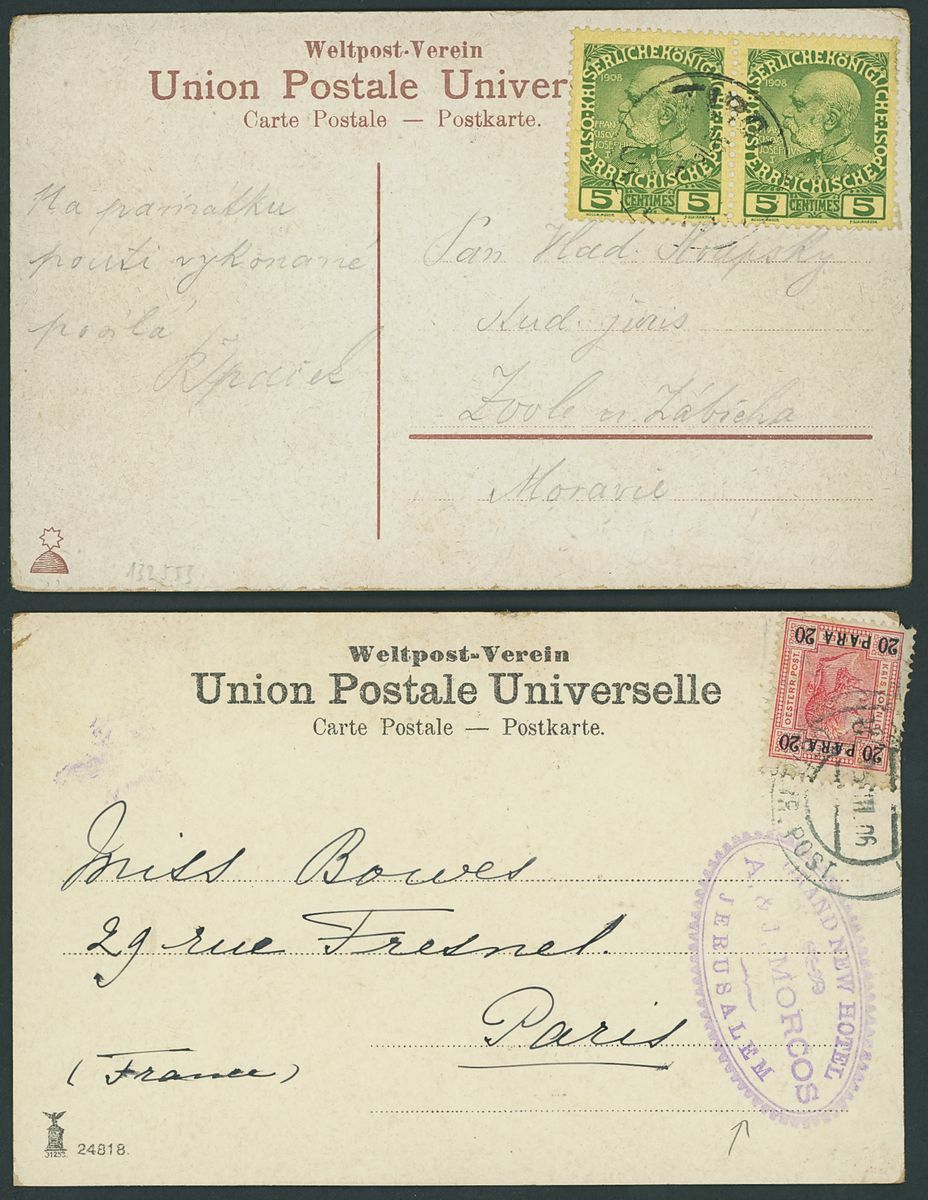 Weltpost-Verein
Union Postale Univers
Carte Postale — Postkarte.
KAISERLICHE KÖNIGLICHE ÖSTERREICHISCHE POST
1908
5 CENTIMES 5
1908
5 CENTIMES 5
Na památku
pouti vykonané
posílá
Pan Vlad.
stud. juris
Zvole u Zábřeha
Moravie
132553
Weltpost-Verein
Union Postale Universelle
Carte Postale — Postkarte.
20 PARA 20
KAIS. KÖNIGL.
OESTERR. POST.
20 PARA 20
06
POST
Miss Bowes
29 rue Fresnel.
Paris
(France)
GRAND NEW HOTEL
A. & J. MORCOS
JERUSALEM
31253.
24818.